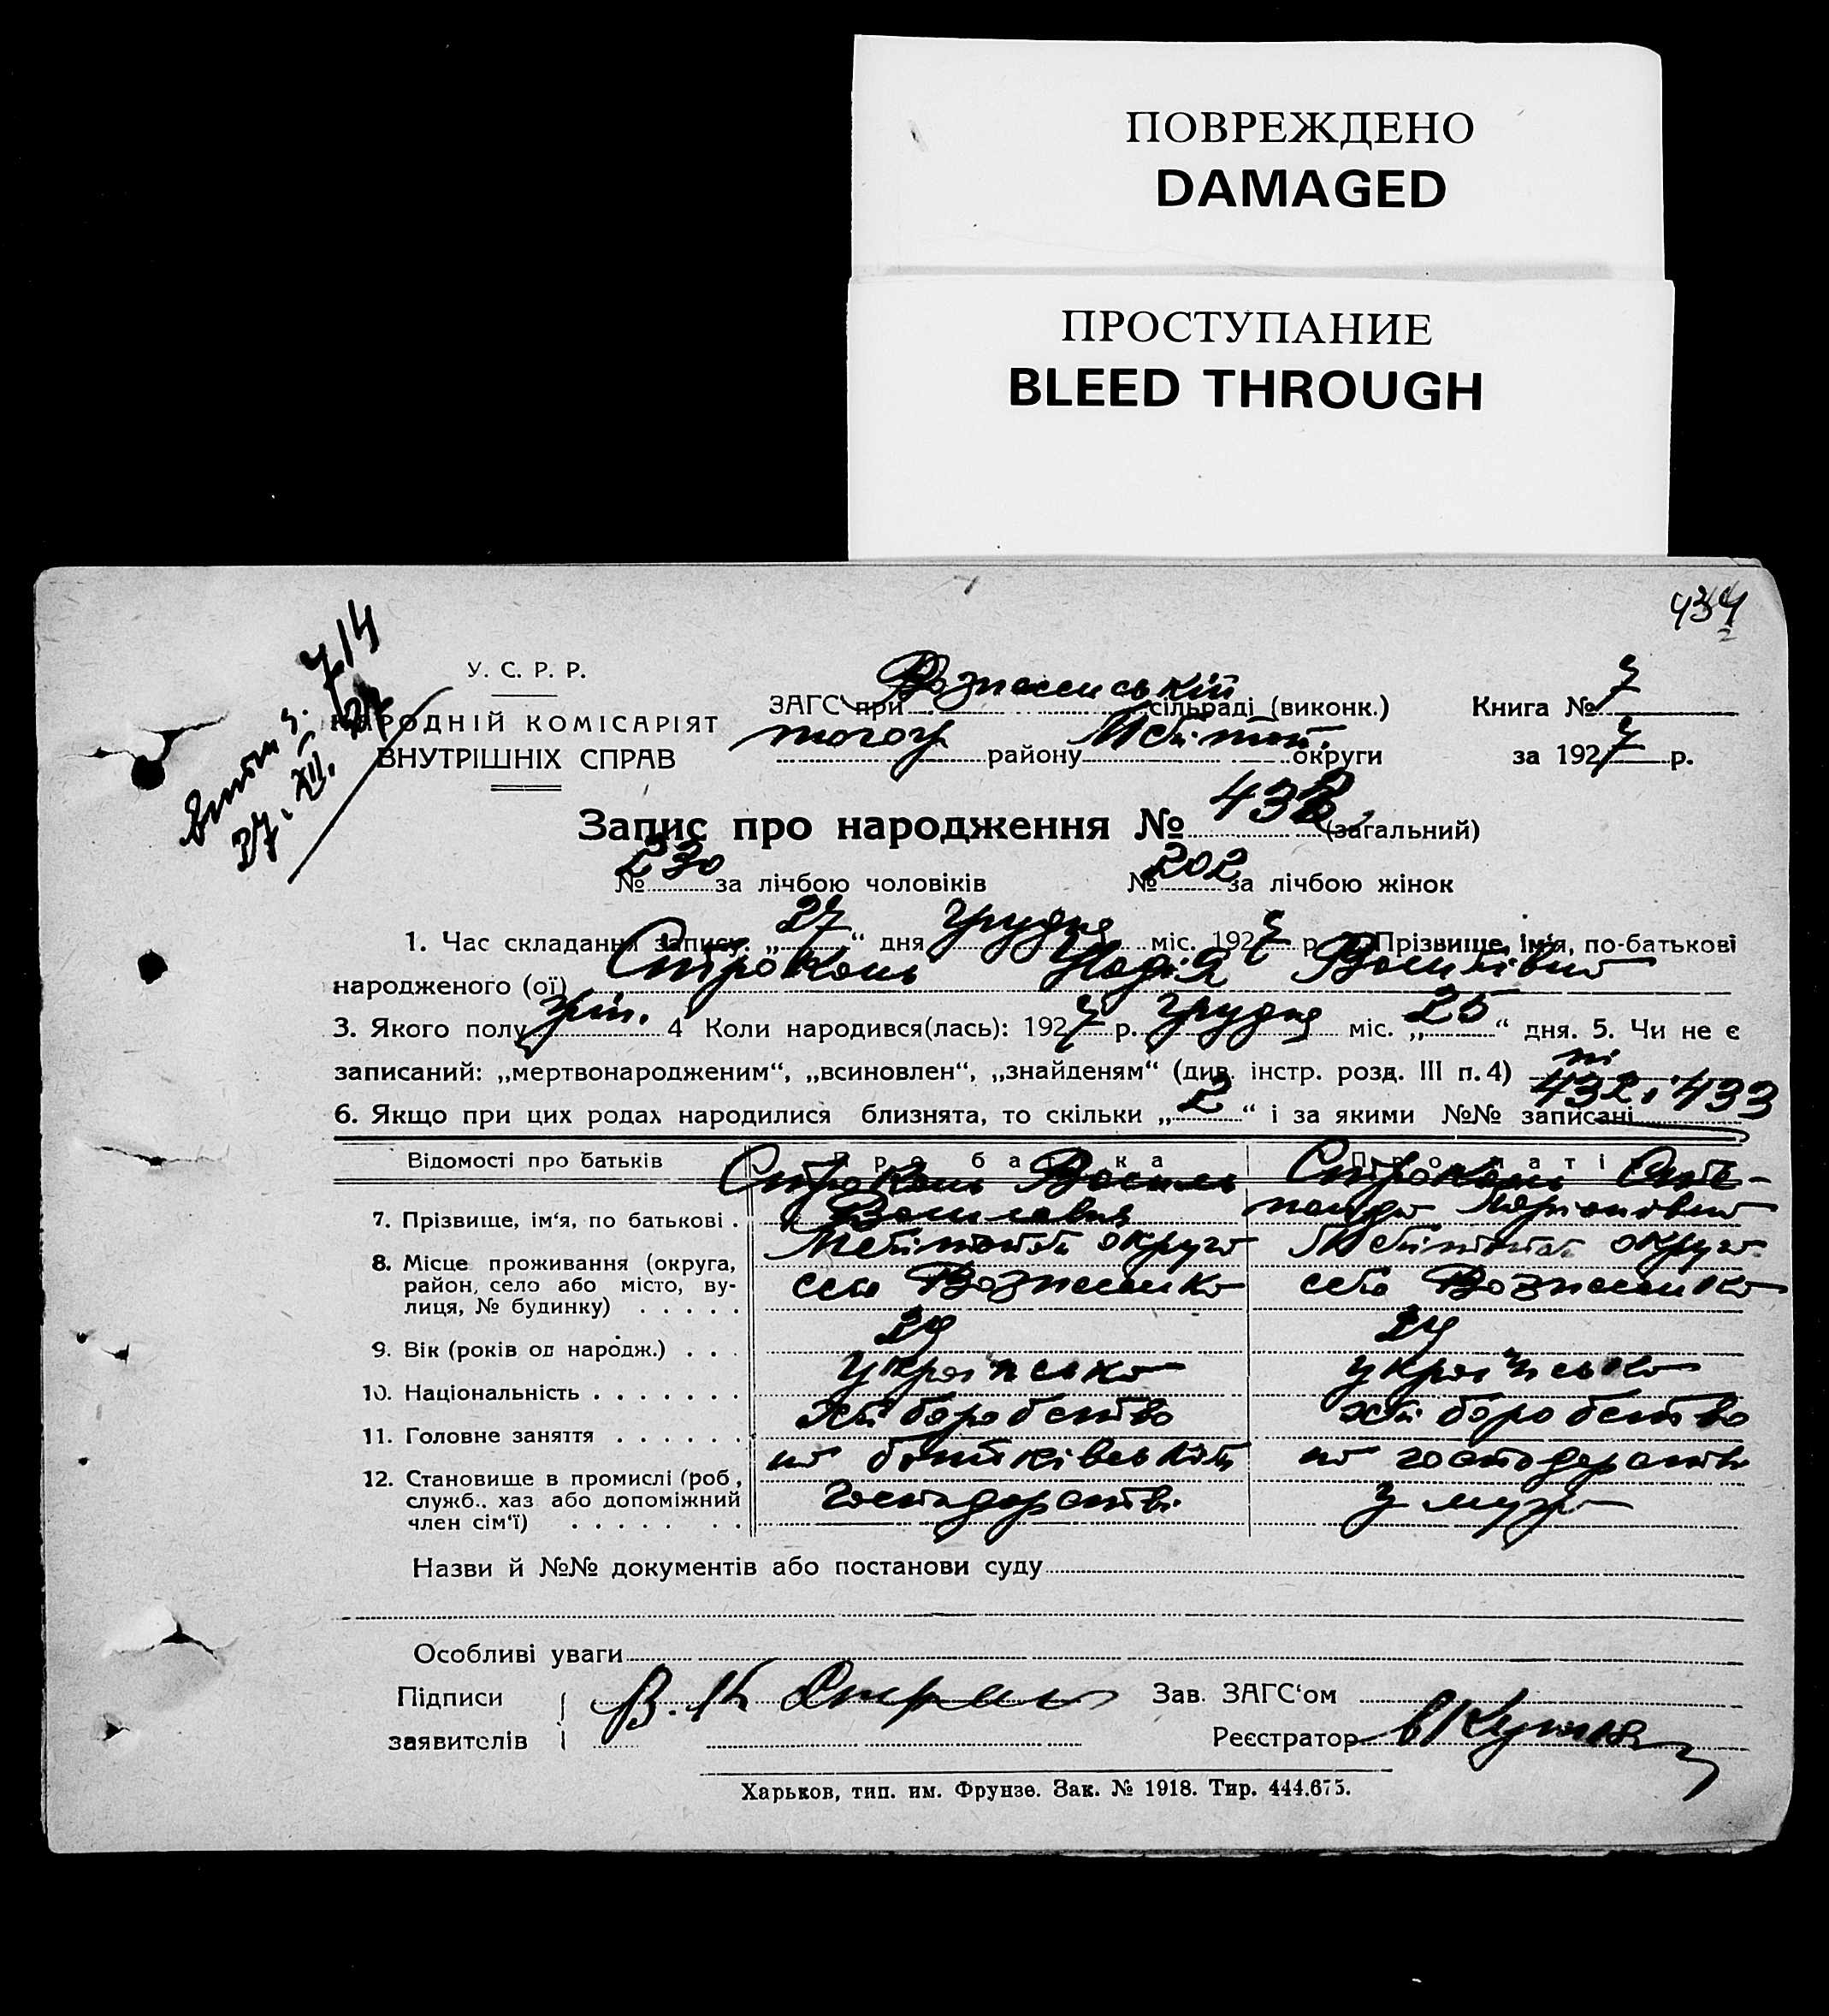 ПОВРЕЖДЕНО
DAMAGED
ПРОСТУПАНИЕ
BLEED THROUGH
434
714
27. XII. 27
У. С. Р. Р.
НАРОДНІЙ КОМІСАРІЯТ
ВНУТРІШНІХ СПРАВ
ЗАГС при Вознесенській сільраді (виконк.)
того району Мелітоп. округи
Книга № 7
за 1927 р.
Запис про народження № 432 (загальний)
№ 230 за лічбою чоловіків № 202 за лічбою жінок
1. Час складання запису. „27“ дня Грудня міс. 1927 р. 2. Прізвище, ім‘я, по-батькові
народженого (ої) Строкань Надія Василівна
3. Якого полу жін. 4 Коли народився(лась): 1927 р. Грудня міс. „25“ дня. 5. Чи не є
записаний: „мертвонародженим“, „всиновлен“, „знайденям“ (див. інстр. розд. III п. 4) ні
6. Якщо при цих родах народилися близнята, то скільки „2“ і за якими №№ записані 432, 433
Відомості про батьків Про батька Про маті
7. Прізвище, ім‘я, по батькові . Строкань Василь Васильович Строкань
8. Місце проживання (округа, район, село або місто, вулиця, № будинку) . . . . . округа село Вознесенка округа село Вознесенка
9. Вік (років од народж.) . . . 29 29
10. Національність . . . . . . . українська українська
11. Головне заняття . . . . . . хліборобство хліборобство
12. Становище в промислі (роб., служб., хаз або допоміжний член сім‘ї) . . . . . . . на батьківськім господарстві на господарстві у мужа
Назви й №№ документів або постанови суду
Особливі уваги
Підписи
заявителів
Зав. ЗАГС‘ом
Реєстратор
Харьков, тип. им. Фрунзе. Зак. № 1918. Тир. 444.675.